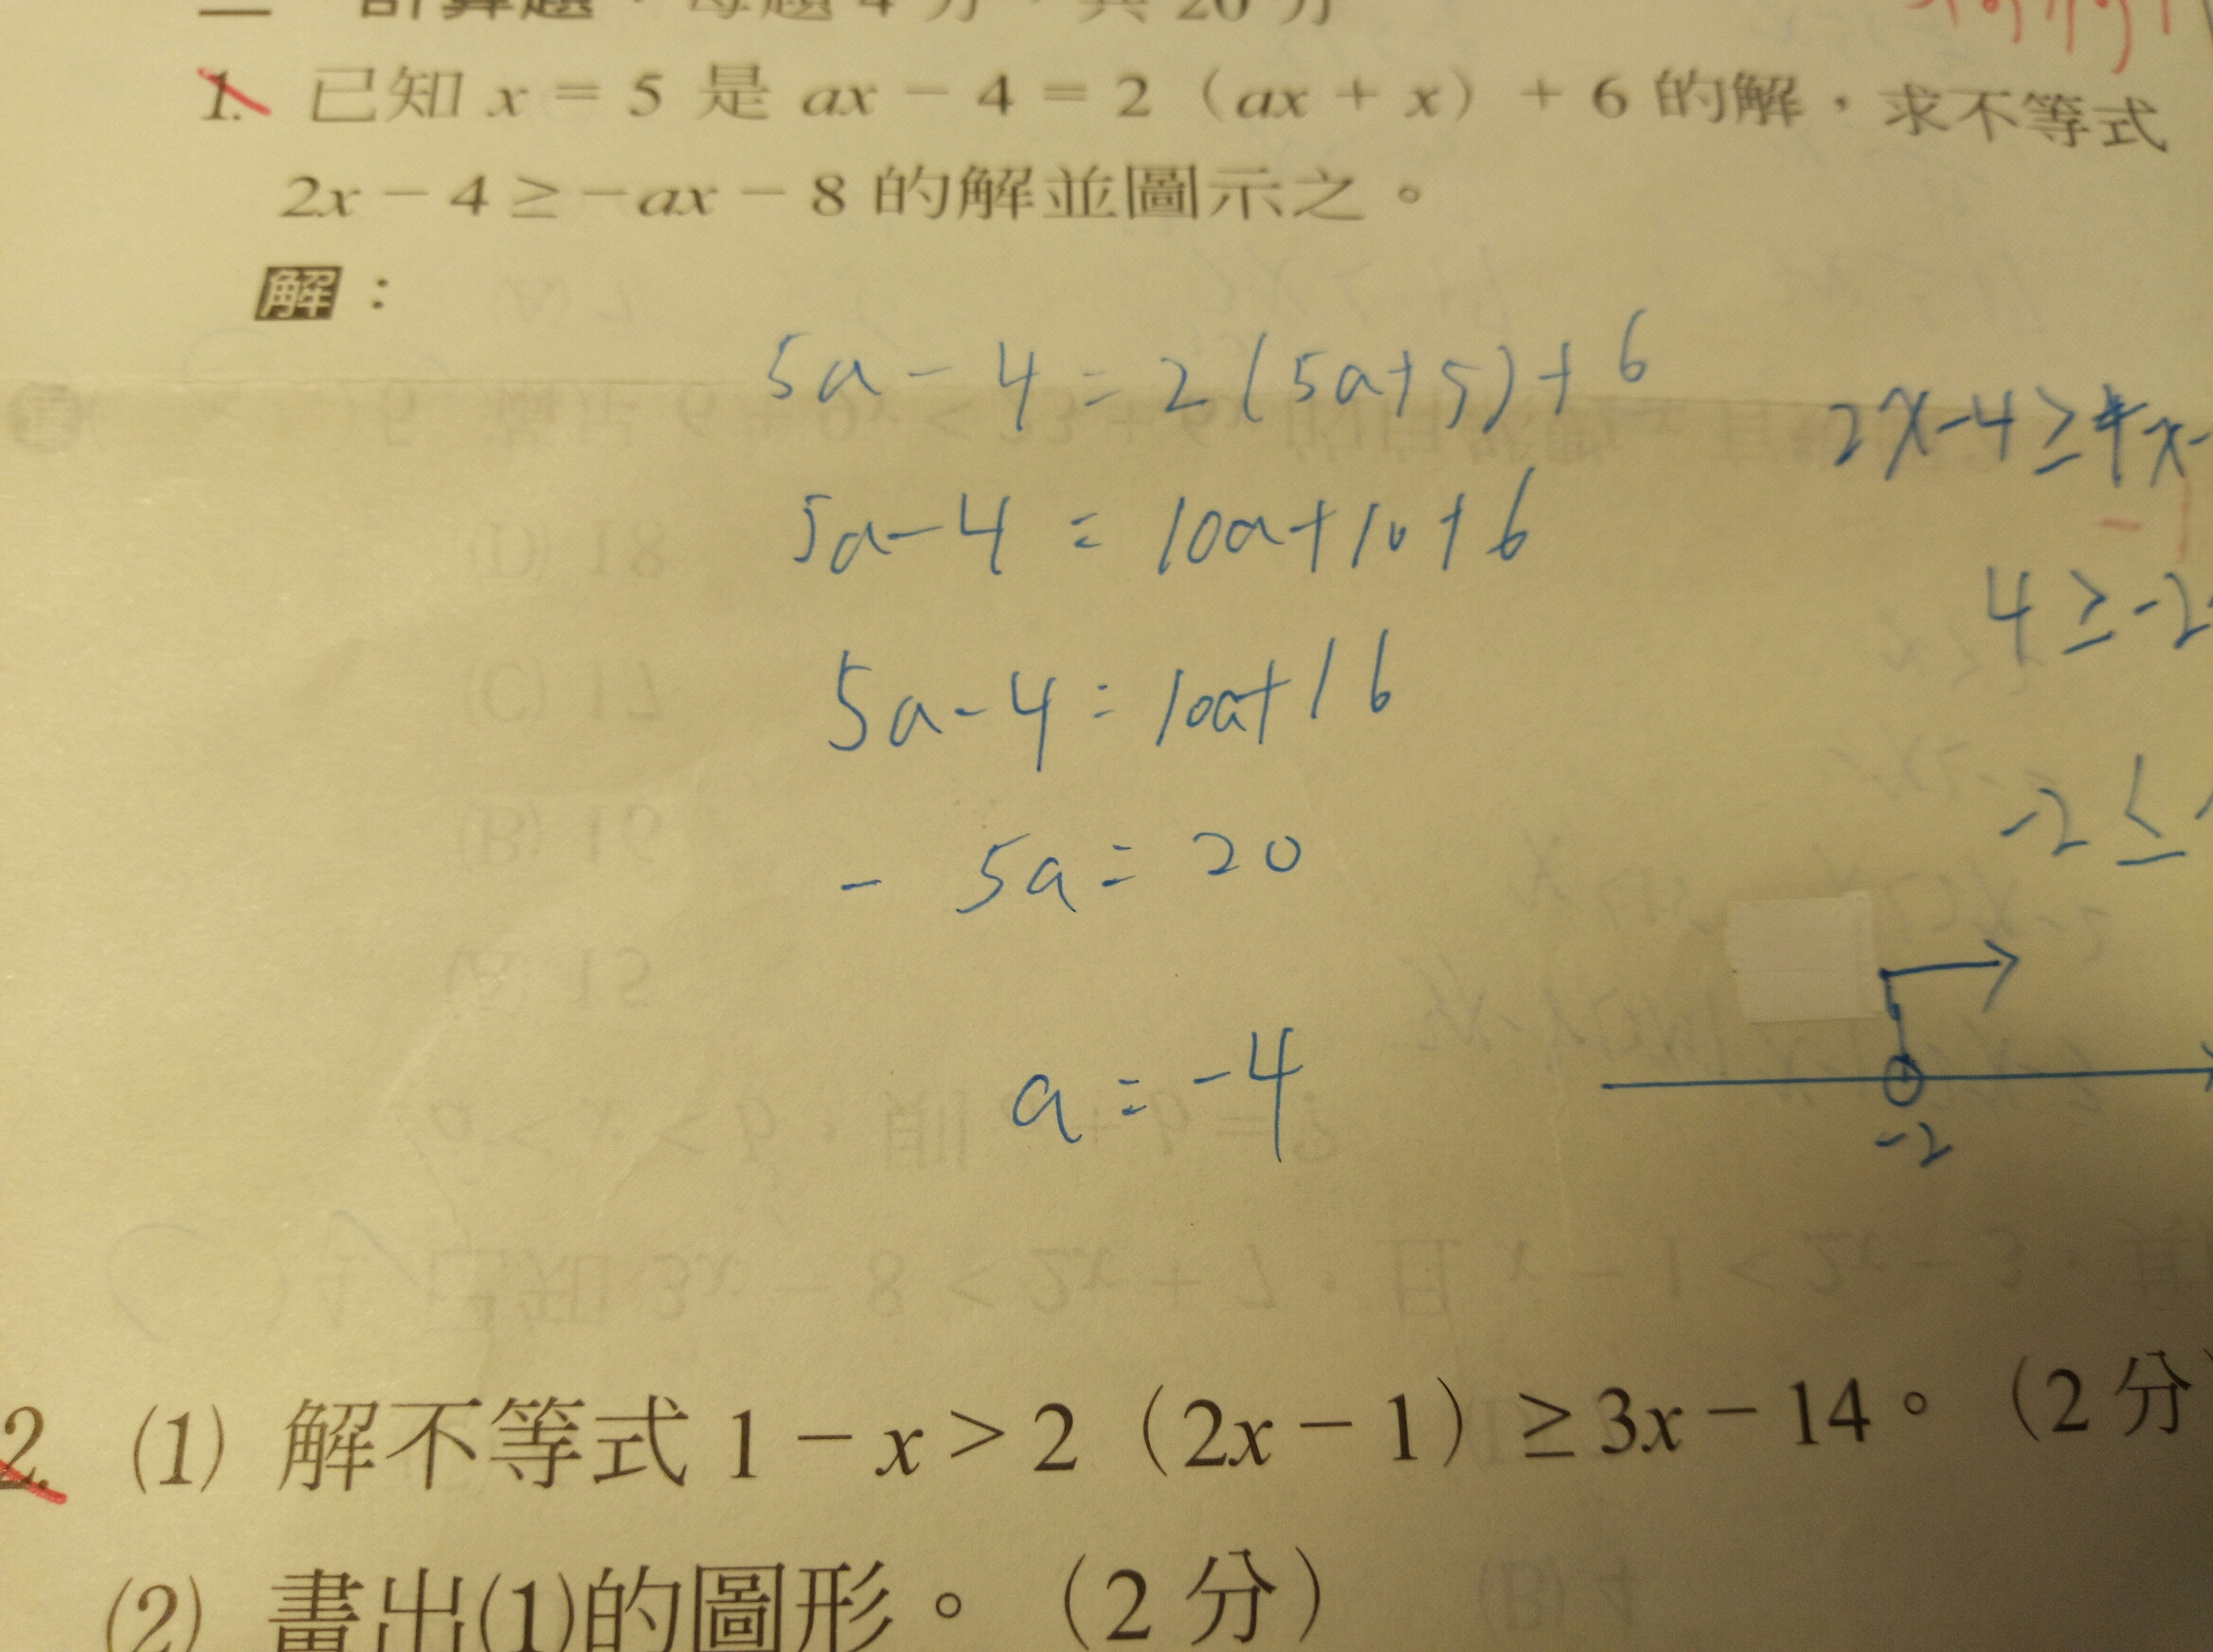 計算題，每題4分，共20分
1. 已知 x = 5 是 ax − 4 = 2（ax + x）+ 6 的解，求不等式
2x − 4 ≥ −ax − 8 的解並圖示之。
解：
5a − 4 = 2(5a+5)+6
5a−4 = 10a+10+6
5a−4 = 10a+16
−5a = 20
a = −4
2x−4 ≥
−1
4 ≥ −2
−2 ≤
−2
2. (1) 解不等式 1 − x > 2（2x − 1）≥ 3x − 14。（2分
(2) 畫出(1)的圖形。（2分）